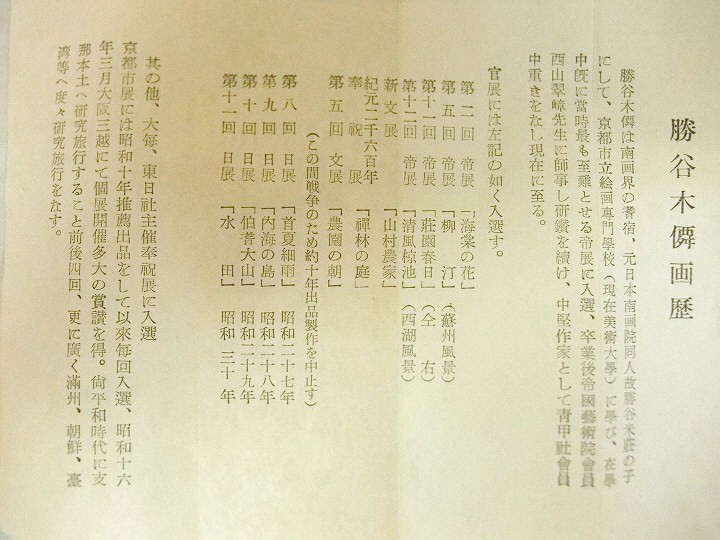 勝谷木僲画歷
勝谷木僲は南画界の耆宿、元日本南画院同人故勝谷米荘の子
にして、京都市立絵画專門學校(現在美術大學)に學び、在學
中既に當時最も至難とせる帝展に入選、卒業後帝國藝術院會員
西山翠嶂先生に師事し研鑽を續け、中堅作家として青甲社會員
中重きをなし現在に至る。
官展には左記の如く入選す。
第二回 帝展 「海棠の花」
第五回 帝展 「柳汀」(蘇州風景)
第十一回 帝展 「莊園春日」(仝右)
第十二回 帝展 「清風椋池」(西湖風景)
新文展 「山村農家」
紀元二千六百年
奉祝展 「禪林の庭」
第五回 文展 「農園の朝」
(この間戰争のため約十年出品製作を中止す)
第八回 日展 「首夏細雨」 昭和二十七年
第九回 日展 「內海の島」 昭和二十八年
第十回 日展 「伯耆大山」 昭和二十九年
第十一回 日展 「水田」 昭和三十年
其の他、大每、東日社主催奉祝展に入選
京都市展には昭和十年推薦出品をして以來每回入選、昭和十六
年三月大阪三越にて個展開催多大の賞讃を得。尙平和時代に支
那本土へ研究旅行すること前後四回、更に廣く滿州、朝鮮、臺
灣等へ度々研究旅行をなす。